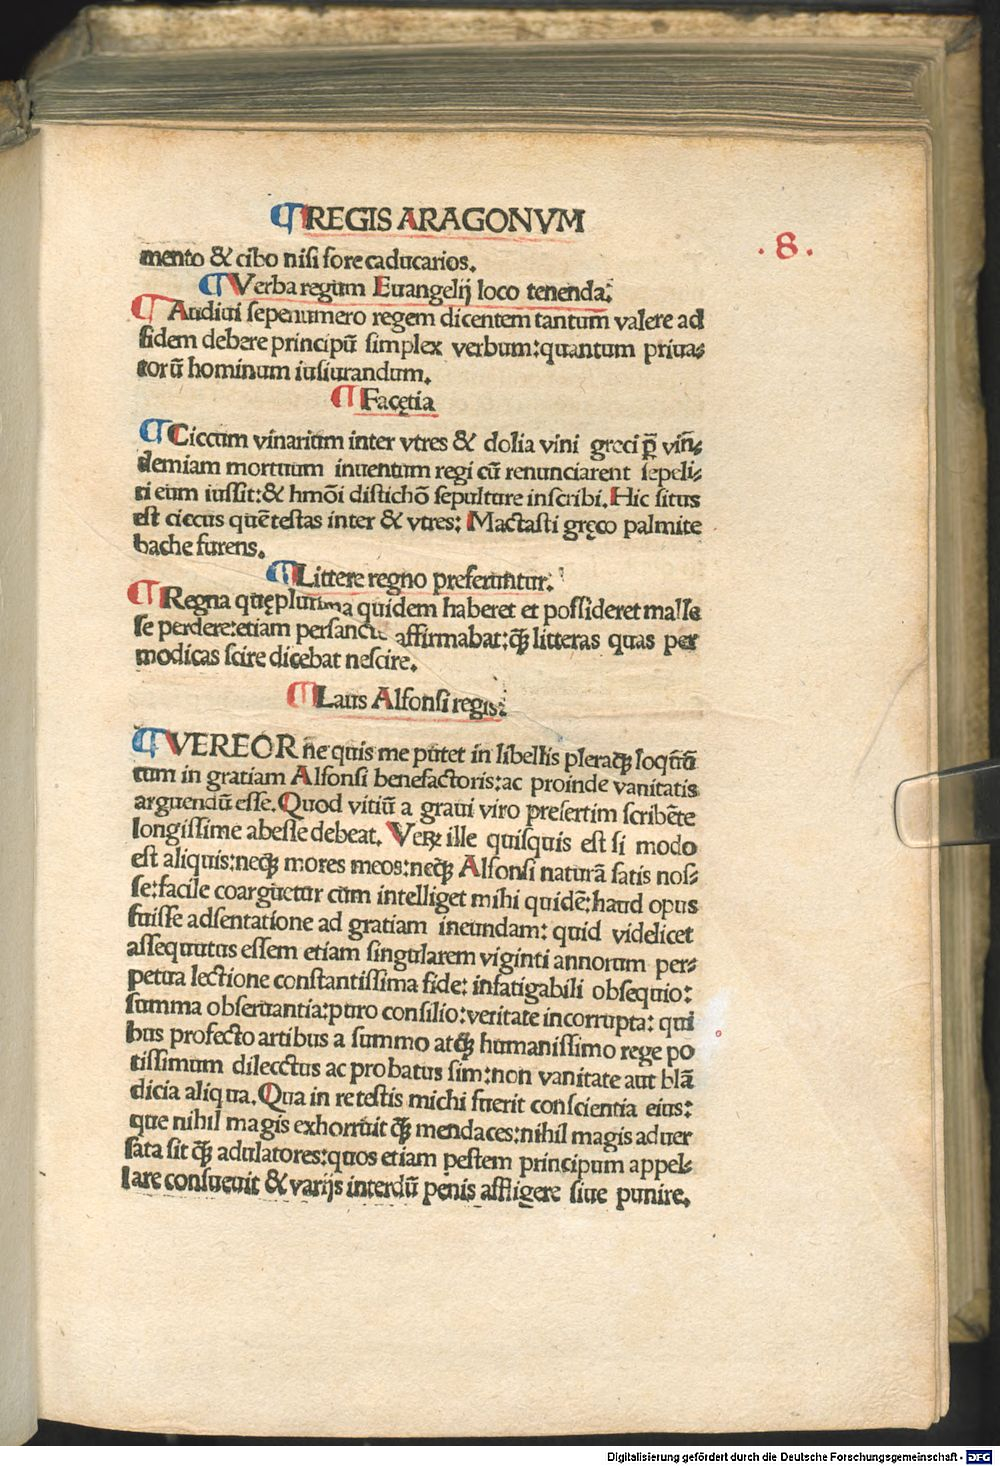 ¶REGIS ARAGONVM
.8.
mento & cibo nisi fore caducarios.
¶Verba regum Euangelij loco tenenda.
¶Audiui sepenumero regem dicentem tantum valere ad
fidem debere principū simplex verbum:quantum priua⸗
torū hominum iusiurandum.
¶Facętia
¶Ciccum vinarium inter vtres & dolia vini greci p̱ vin̄⸗
demiam mortuum inuentum regi cū renunciarent sepeli⸗
ri eum iussit:& hmōi distichō sepulture inscribi.Hic situs
est ciccus quē testas inter & vtres: Mactasti gręco palmite
bache furens.
¶Littere regno preferuntur.
¶Regna quęplurima quidem haberet et possideret malle
se perdere:etiam persancte affirmabat:ꝙ̃ litteras quas per
modicas scire dicebat nescire.
¶Laus Alfonsi regis.
¶VEREOR ne quis me putet in libellis pleraqꝫ loqūtū
tum in gratiam Alfonsi benefactoris:ac proinde vanitatis
arguendū esse.Quod vitiū a graui viro presertim scribēte
longissime abesse debeat. Veꝝ ille quisquis est si modo
est aliquis:neqꝫ mores meos:neqꝫ Alfonsi naturā satis nos⸗
se:facile coarguetur cum intelliget mihi quidē:haud opus
fuisse adsentatione ad gratiam ineundam: quid videlicet
assequutus essem etiam singularem viginti annorum per⸗
petua lectione constantissima fide: infatigabili obsequio:
summa obseruantia:puro consilio:veritate incorrupta: qui
bus profecto artibus a summo atqꝫ humanissimo rege po
tissimum dilecctus ac probatus sim:non vanitate aut blā
dicia aliqua.Qua in re testis michi fuerit conscientia eius:
que nihil magis exhorruit ꝙ̃ mendaces:nihil magis aduer
sata sit ꝙ̃ adulatores:quos etiam pestem principum appel⸗
lare consueuit & varijs interdū penis affligere siue punire.
Digitalisierung gefördert durch die Deutsche Forschungsgemeinschaft - DFG